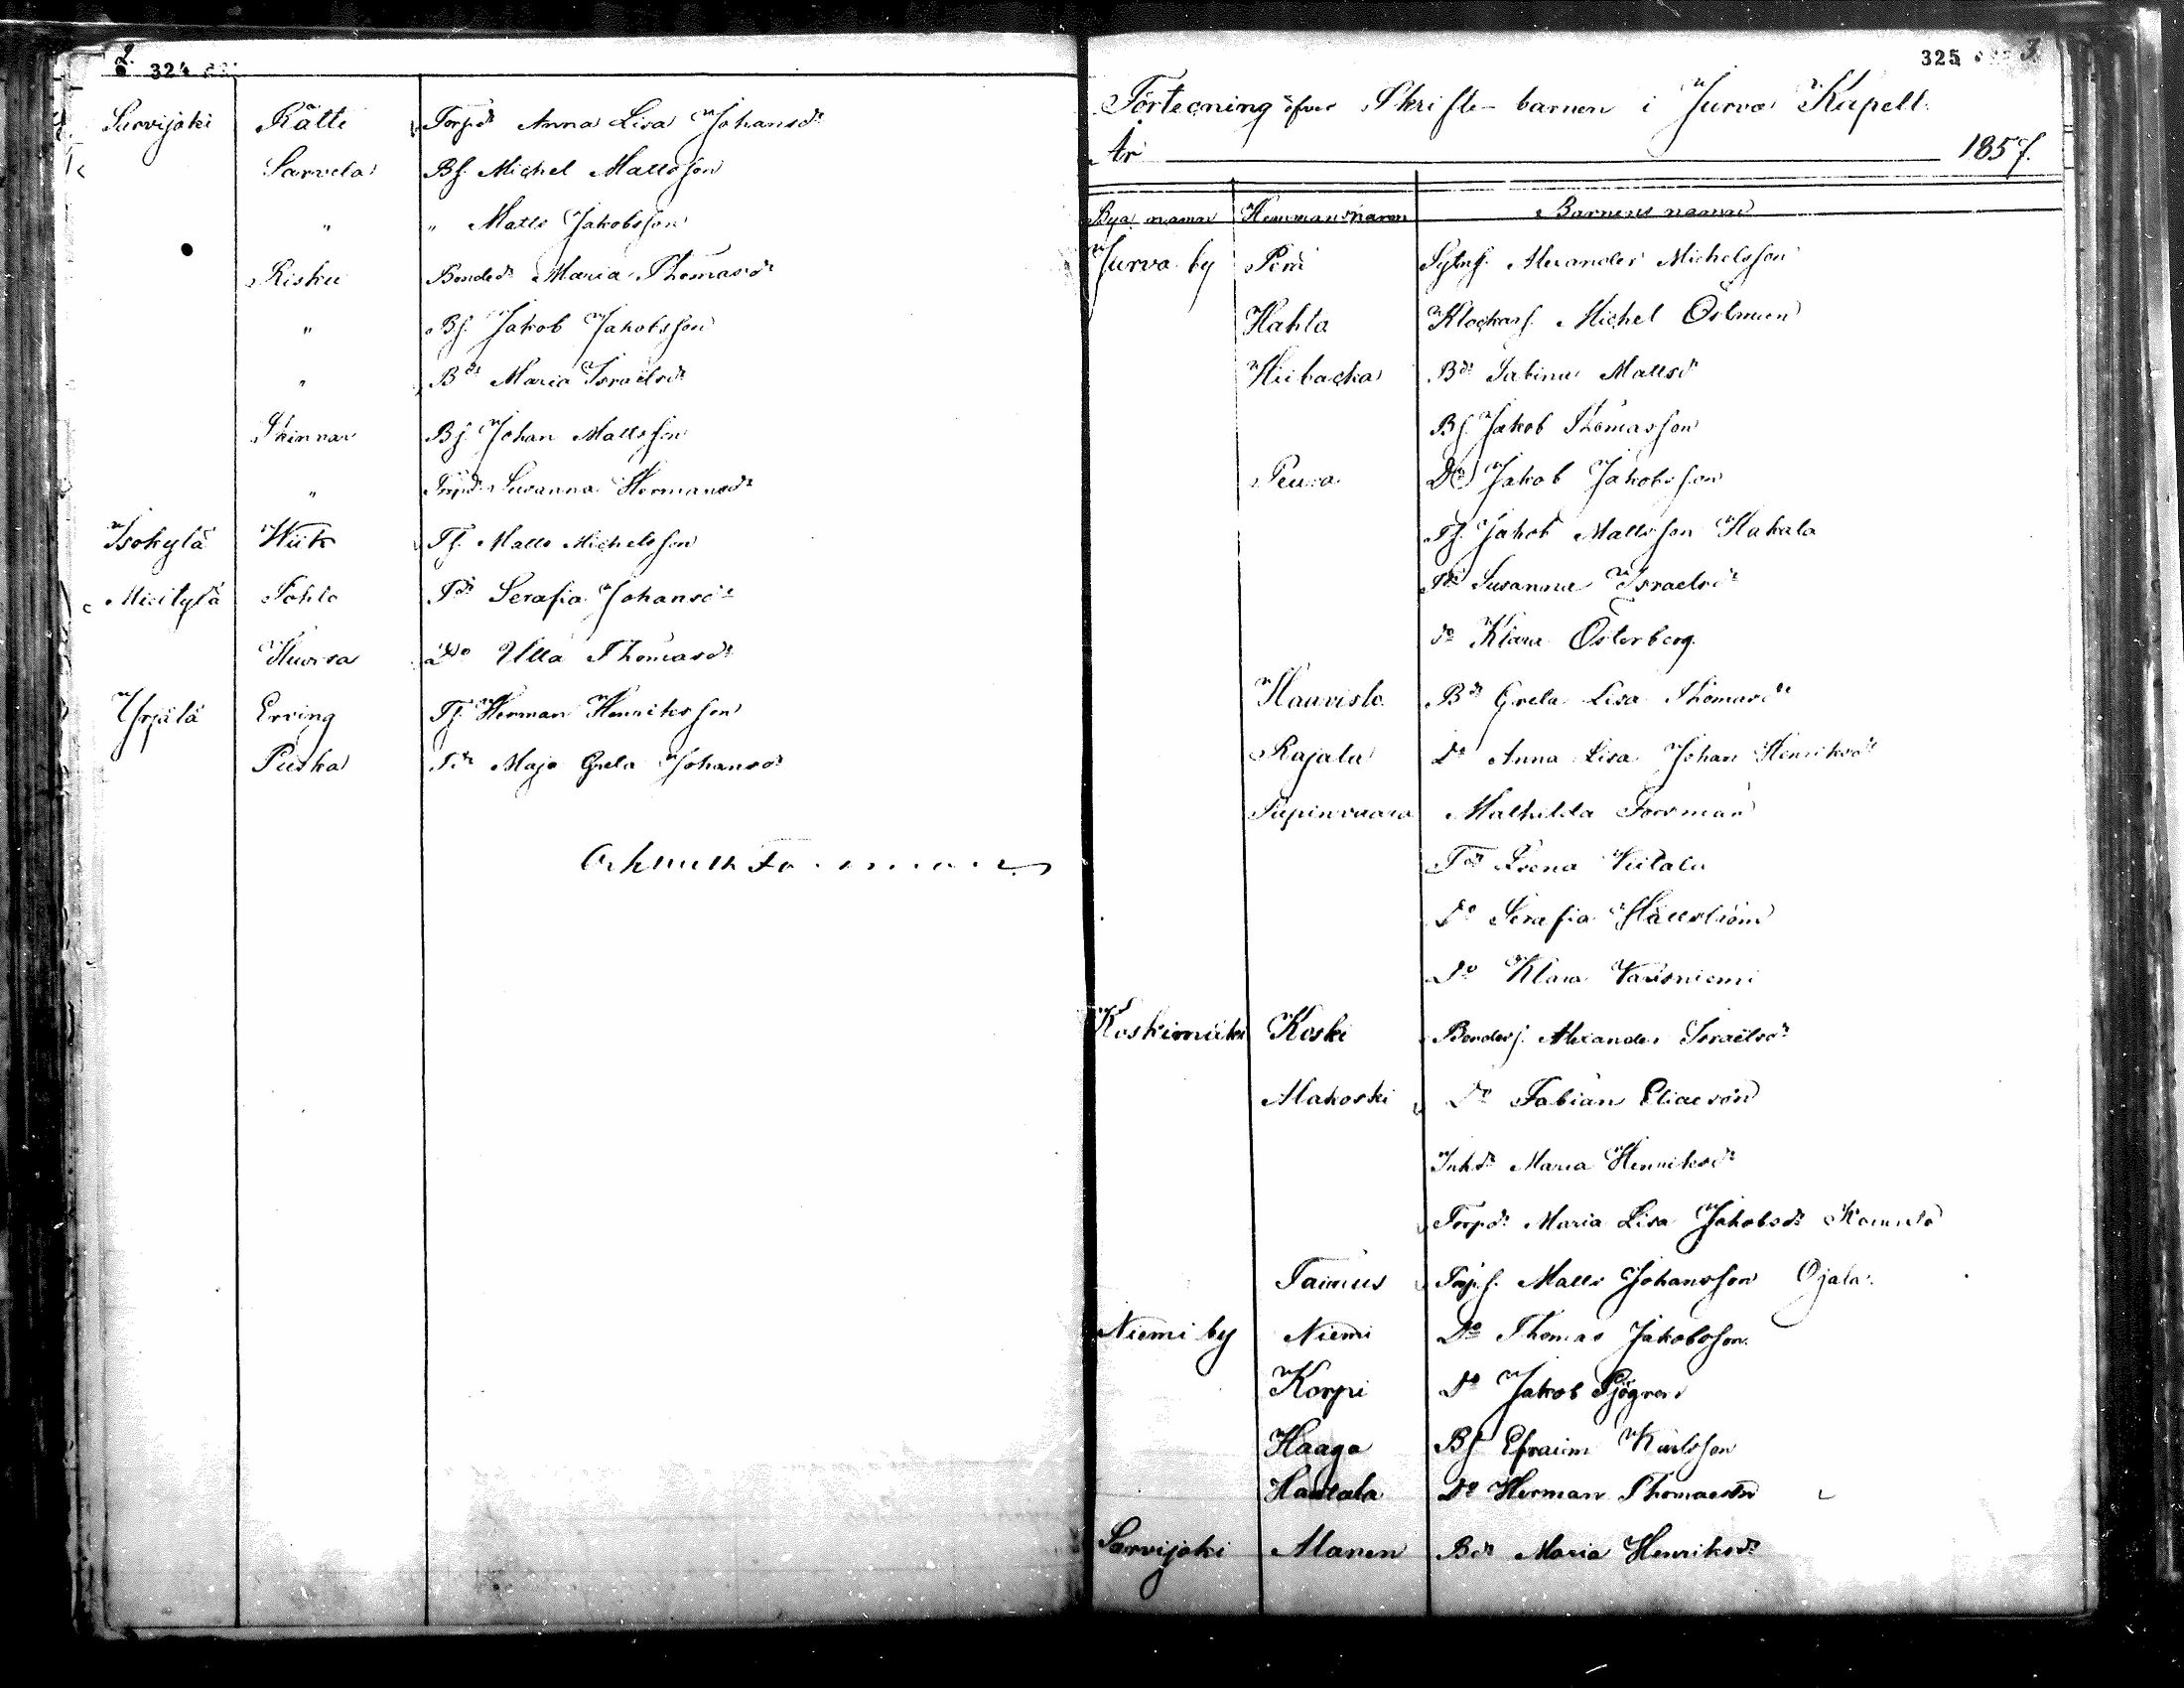 2. 324
Sarvijoki Rätti Torpdr Anna Lisa Johansdr
Sarvela Bs. Michel Mattsson
" " Matts Jakobsson
Risku Bondedr Maria Thomasdr
" Bs. Jakob Jakobsson
" Bdr Maria Israelsdr
Skinnar Bs. Johan Mattsson
" Torpdr Susanna Hermansdr
Isokylä Wiik Ts. Matts Michelsson
Miettylä Tdr Serafia Johansdr
Do Ulla Thomasdr
Yrjälä Erving Ts. Herman Henriksson
Puska Tdr Maja Greta Johansdr
325 3.
Förtecning öfver Skrifte-barnen i Jurva Kapell.
År 1857.
Bya namn Hemmansnamn Barnens namn
Jurva by Peni Sytns. Alexander Michelsson
Hahto Klockars. Michel Östman
Hiibacka Bdr Sabina Mattsdr
Bs. Jakob Thomasson
Peura Do Jakob Jakobsson
Ts. Jakob Mattsson Hakala
Tdr Susanna Israelsdr
do Klara Österberg
Haavisto Bdr Greta Lisa Thomasdr
Rajala Do Anna Lisa Johan Henriksdr
Mathilda Forsman
Tdr Viitala
Do Serafia Hällström
Do Klara Varisniemi
Koskimäki Koski Bondes. Alexander Israelsdr
Alakoski Do Fabian Eliasson
Inhdr Maria Henriksdr
Torpdr Maria Lisa Jakobsdr
Taimus Torps. Matts Johansson Ojala
Niemi by Niemi Do Thomas Jakobsson
Korpi Do Jakob Sjögren
Haaga Bs Efraim Karlsson
Hautala Do Herman Thomasson
Sarvijoki Alanen Bdr Maria Henriksdr